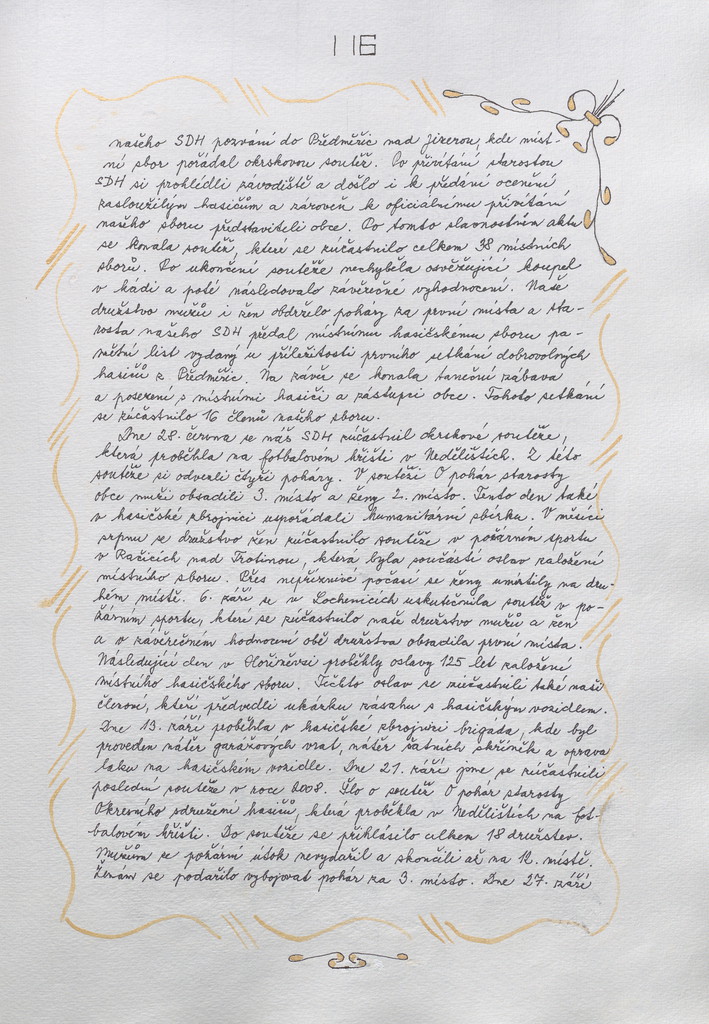 116
našeho SDH pozvání do Předměřic nad Jizerou, kde míst-
ní sbor pořádal okrskovou soutěž. Po přivítání starostou
SDH si prohlédli závodiště a došlo i k předání ocenění
zasloužilým hasičům a zároveň k oficiálnímu přivítání
našeho sboru představiteli obce. Po tomto slavnostním aktu
se konala soutěž, které se zúčastnilo celkem 38 místních
sborů. Po ukončení soutěže nechyběla osvěžující koupel
v kádi a poté následovalo závěrečné vyhodnocení. Naše
družstvo mužů i žen obdrželo poháry za první místa a sta-
rosta našeho SDH předal místnímu hasičskému sboru pa-
mětní list vydaný u příležitosti prvního setkání dobrovolných
hasičů z Předměřic. Na závěr se konala taneční zábava
a posezení s místními hasiči a zástupci obce. Tohoto setkání
se zúčastnilo 16 členů našeho sboru.
Dne 28. června se náš SDH zúčastnil okrskové soutěže,
která proběhla na fotbalovém hřišti v Nedělištích. Z této
soutěže si odvezli čtyři poháry. V soutěži O pohár starosty
obce muži obsadili 3. místo a ženy 2. místo. Tento den také
v hasičské zbrojnici uspořádali humanitární sbírku. V měsíci
srpnu se družstvo žen zúčastnilo soutěže v požárním sportu
v Račicích nad Trotinou, která byla součástí oslav založení
místního sboru. Přes nepříznivé počasí se ženy umístily na dru-
hém místě. 6. září se v Lochenicích uskutečnila soutěž v po-
žárním sportu, které se zúčastnilo naše družstvo mužů a žen
a v závěrečném hodnocení obě družstva obsadila první místa.
Následující den v Hořiněvsi proběhly oslavy 125 let založení
místního hasičského sboru. Těchto oslav se zúčastnili také naši
členové, kteří předvedli ukázku zásahu s hasičským vozidlem.
Dne 13. září proběhla v hasičské zbrojnici brigáda, kde byl
proveden nátěr garážových vrat, nátěr šatních skříněk a oprava
laku na hasičském vozidle. Dne 21. září jsme se zúčastnili
poslední soutěže v roce 2008. Šlo o soutěž O pohár starosty
Okresního sdružení hasičů, která proběhla v Nedělištích na fot-
balovém hřišti. Do soutěže se přihlásilo celkem 18 družstev.
Mužům se požární útok nevydařil a skončili až na 12. místě.
Ženám se podařilo vybojovat pohár za 3. místo. Dne 27. září